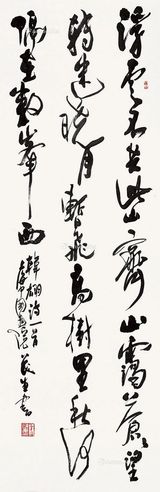 浮雲不共此山齊山靄蒼〻望
轉迷曉月暫飛高樹里秋河
隔在數峯西
韓翃詩一首
書